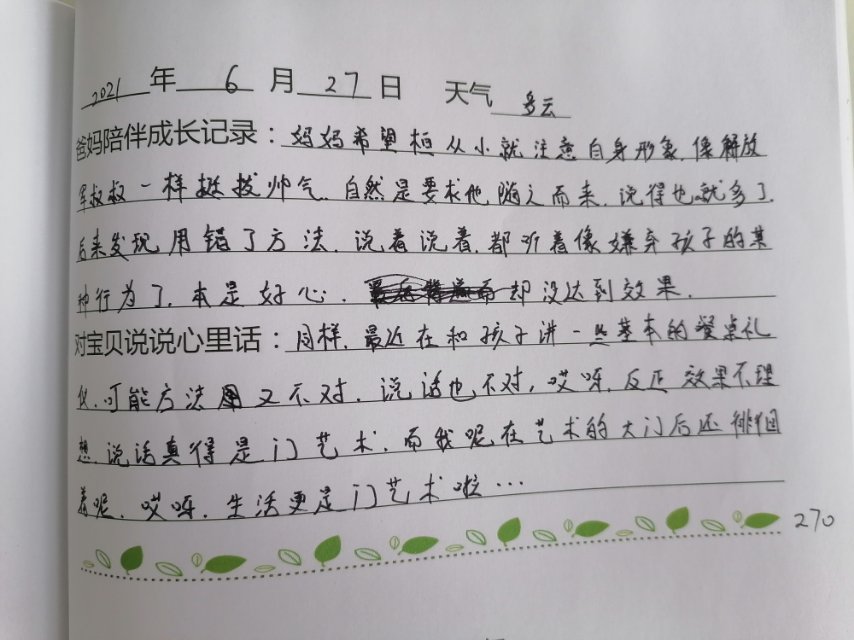 2021年6月27日 天气 多云
爸妈陪伴成长记录：妈妈希望桓从小就注意自身形象，像解放
军叔叔一样挺拔帅气。自然是要求他，随之而来，说得也就多了，
后来发现用错了方法，说着说着，都听着像嫌弃孩子的某
种行为了，本是好心，却没达到效果。
对宝贝说说心里话：同样，最近在和孩子讲一些基本的餐桌礼
仪，可能方法用又不对，说话也不对，哎呀，反正效果不理
想，说话真得是门艺术，而我呢在艺术的大门后还徘徊
着呢，哎呀，生活更是门艺术啦…
270